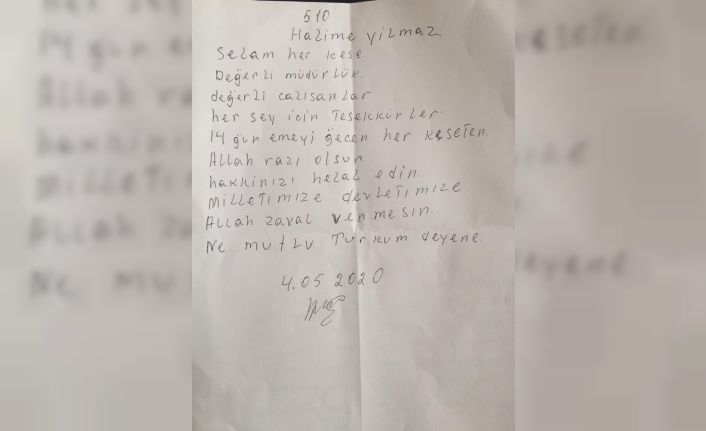 510
Halime yilmaz.
Selam her kese.
Değerli müdürlük.
değerli calisanlar
her sey icin Tesekkürler
14 gün emeyi geçen her keseTen.
Allah razı olsun
hakkinizi helal edin.
MilleTimize devleTimize
Allah zaval vermesin.
Ne mutlu Türkum deyene.
4.05.2020